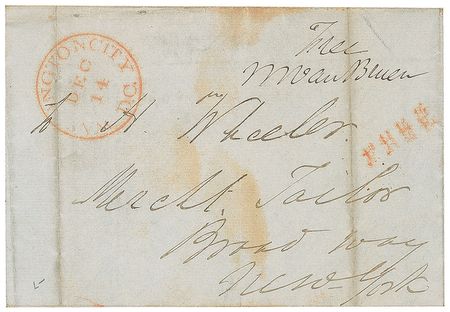 Free
MVanBuren
WASHINGTON CITY D.C.
DEC
14
FREE
To H Wheeler.
Mercht. Tailor
Broad way
New-York